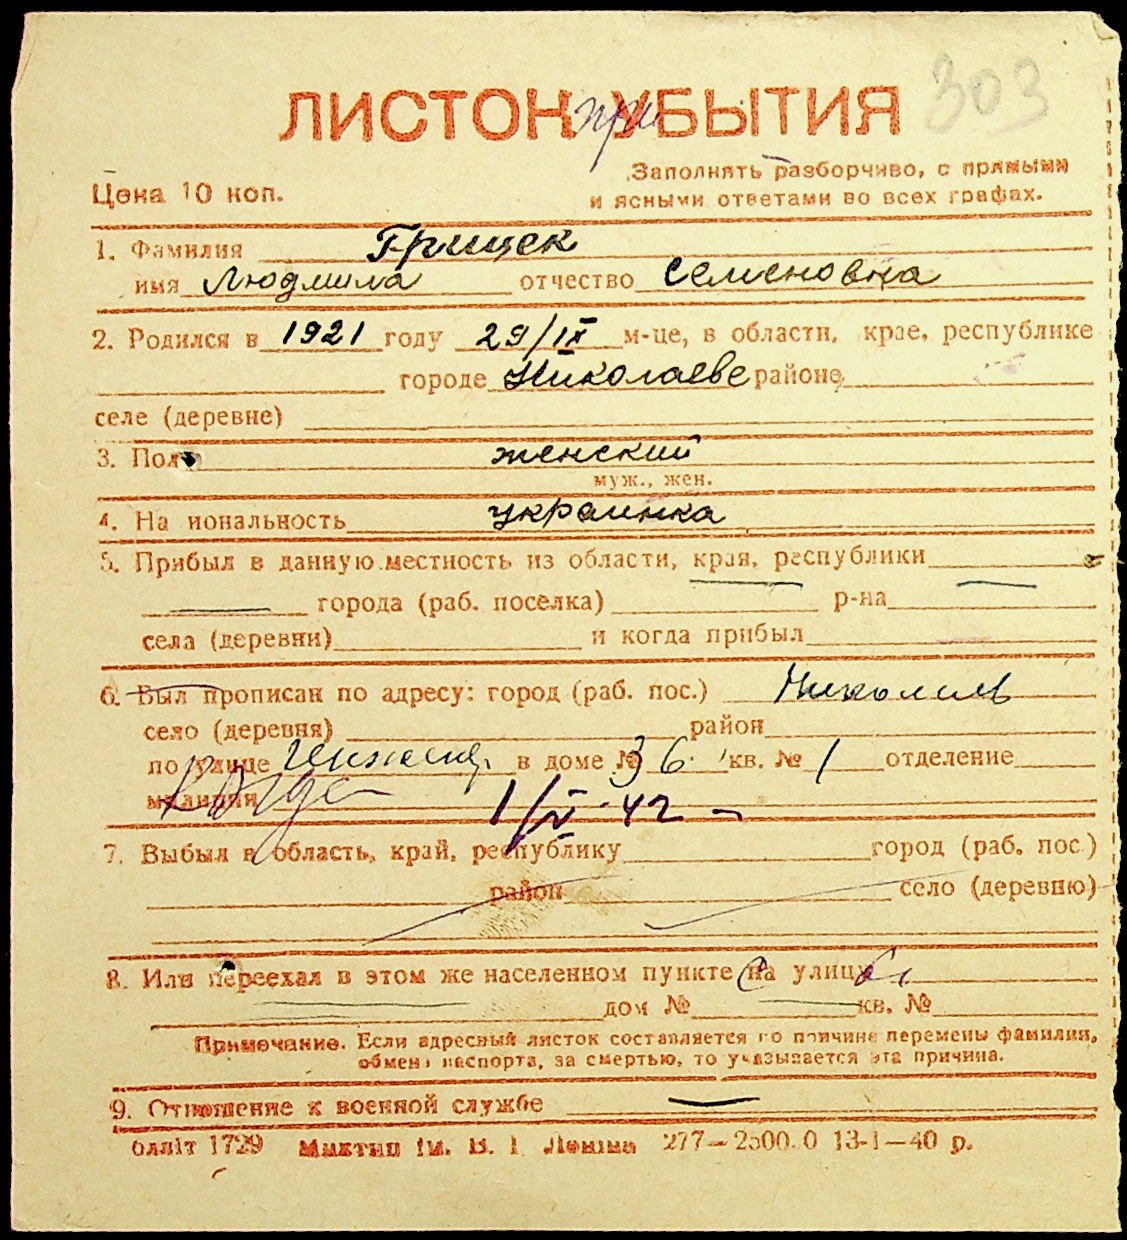 303
ЛИСТОК при УБЫТИЯ
Цена 10 коп.
Заполнять разборчиво, с прямыми
и ясными ответами во всех графах.
1. Фамилия Грищек
имя Людмила отчество Семеновна
2. Родился в 1921 году 29/IX м-це, в области, крае, республике
городе Николаеве районе
селе (деревне)
3. Пол женский
муж., жен.
4. На иональность украинка
5. Прибыл в данную местность из области, края, республики
города (раб. поселка) р-на
села (деревни) и когда прибыл
6. Был прописан по адресу: город (раб. пос.) Николаев
село (деревня) район
по улице Инжен. в доме № 36 кв. № 1 отделение
милиции 1/V-42
7. Выбыл в область, край, республику город (раб. пос.)
район село (деревню)
8. Или переехал в этом же населенном пункте на улицу
дом № кв. №
Примечание. Если адресный листок составляется по причине перемены фамилии,
обмена паспорта, за смертью, то указывается эта причина.
9. Отношение к военной службе —
блліт 1729 Миктип ім. В. І. Леніна 277—2500.0 13-I—40 р.